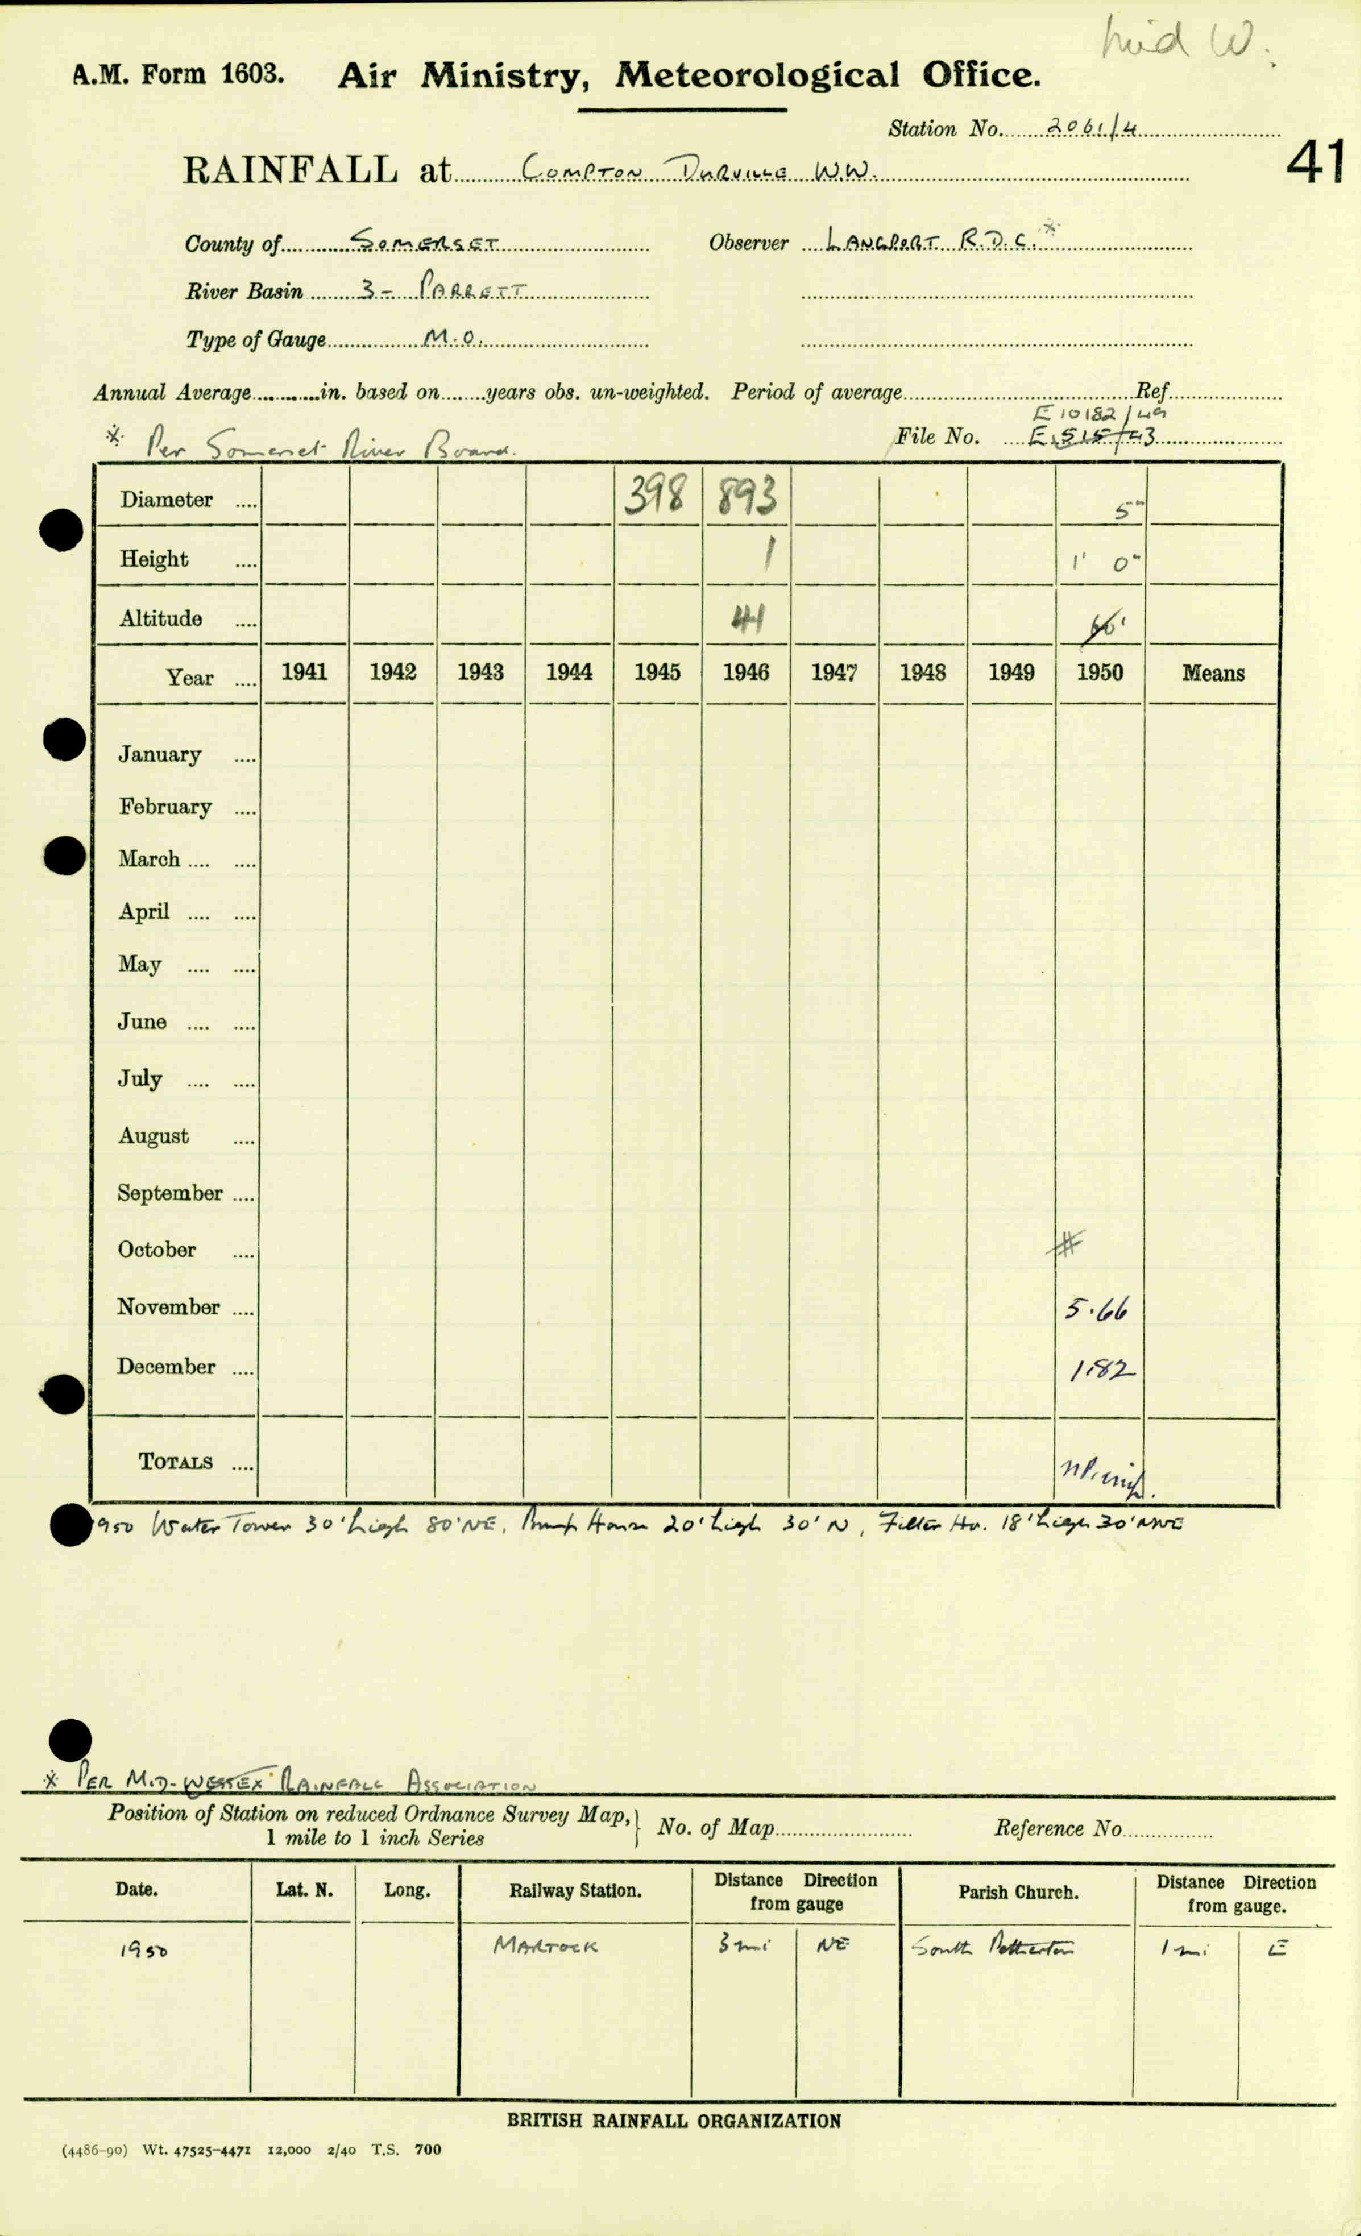 Mid W.
A.M. Form 1603. Air Ministry, Meteorological Office.
Station No. 2061/4
41
RAINFALL at COMPTON DURVILLE W.W.
County of SOMERSET Observer LANGPORT R.D.C. *
River Basin 3 - PARRETT
Type of Gauge M.O.
Annual Average in. based on years obs. un-weighted. Period of average Ref.
E 10182/49
* Per Somerset River Board. File No. E.515/43
Diameter .... 398 893 5"
Height .... 1 1' 0"
Altitude .... 41 60'
Year .... 1941 1942 1943 1944 1945 1946 1947 1948 1949 1950 Means
January ....
February ....
March .... ....
April .... ....
May .... ....
June .... ....
July .... ....
August ....
September ....
October .... #
November .... 5.66
December .... 1.82
TOTALS ....
1950 Water Tower 30' high 80' NE, Pump House 20' high 30' N, Filter Ho. 18' high 30' NNE
* PER MID-WESSEX RAINFALL ASSOCIATION
Position of Station on reduced Ordnance Survey Map, } No. of Map Reference No.
1 mile to 1 inch Series
Date. Lat. N. Long. Railway Station. Distance Direction from gauge Parish Church. Distance Direction from gauge.
1950 MARTOCK 3 mi NE South Petherton 1 mi E
BRITISH RAINFALL ORGANIZATION
(4486-90) Wt. 47525-4471 12,000 2/40 T.S. 700